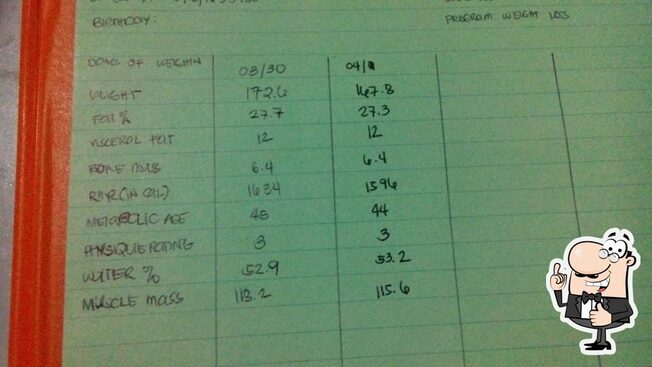 BIRTHDAY:
PROGRAM: WEIGHT LOSS
DATE OF WEIGHIN 03/30
WEIGHT 172.6 167.8
FAT % 27.7 27.3
VISCERAL FAT 12 12
BONE MASS 6.4 6.4
RMR (IN CAL) 1634 1596
METABOLIC AGE 45 44
PHYSIQUE RATING 3 3
WATER % 52.9 53.2
MUSCLE MASS 118.2 115.6